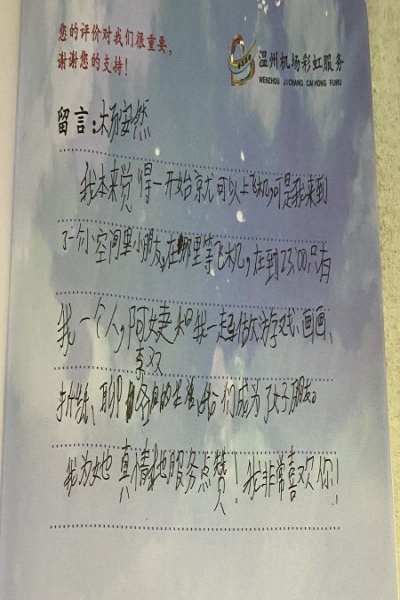 您的评价对我们很重要,
谢谢您的支持!
温州机场彩虹服务
WENZHOU JICHANG CAIHONG FUWU
留言:杨安然
我本来觉得一开始就可以上飞机,可是我来到
了一个小空间里小朋友,在那里等飞机,在到23:00只有
我一个人,阿姨和我一起做游戏、画画、
亲双
聊 们成为了好朋友。
我为她真情地服务点赞!我非常喜欢你!